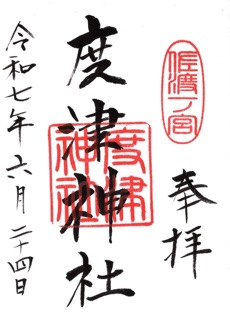 佐渡一ノ宮
奉拝
度津神社
度津神社
令和七年六月二十四日